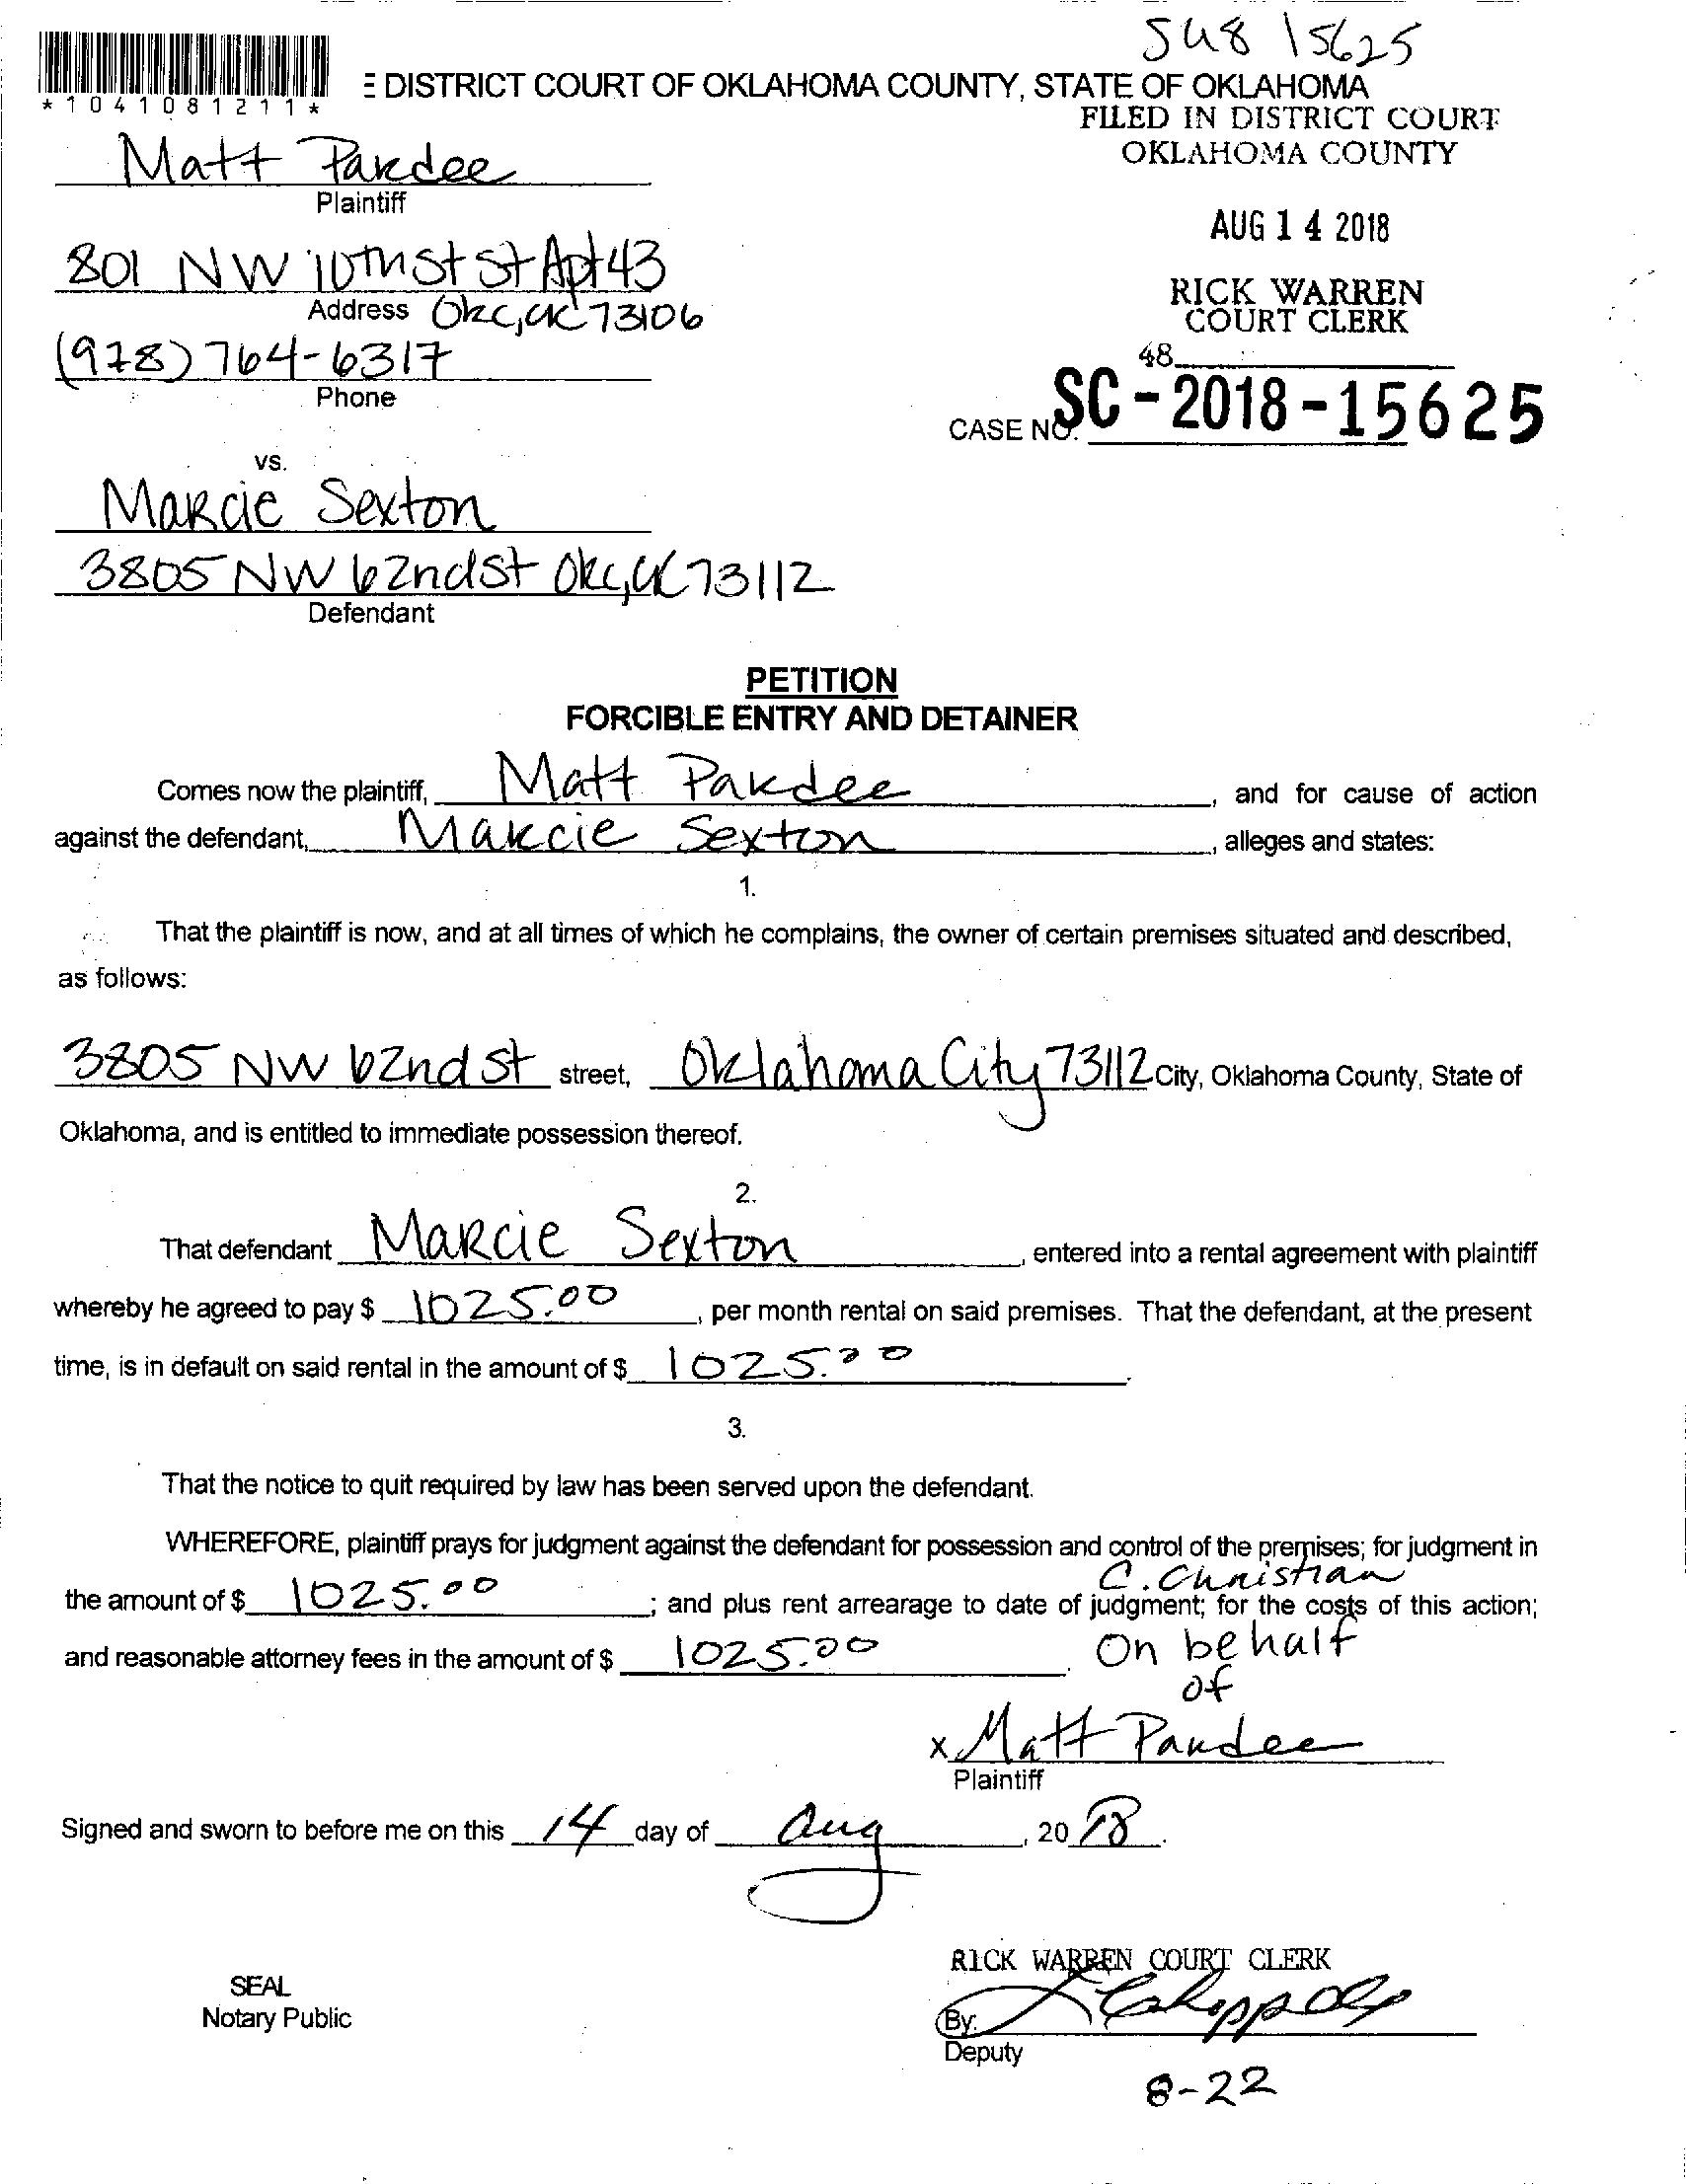 SC18 15625
E DISTRICT COURT OF OKLAHOMA COUNTY, STATE OF OKLAHOMA
*1041081211*
FILED IN DISTRICT COURT
OKLAHOMA COUNTY
Matt Pardee
Plaintiff
AUG 14 2018
801 NW 10th St St Apt 43
Address Okc, OK 73106
RICK WARREN
COURT CLERK
(978) 764-6317
Phone
48
CASE NO. SC-2018-15625
vs.
Marcie Sexton
3805 NW 62nd St Okc, OK 73112
Defendant
PETITION
FORCIBLE ENTRY AND DETAINER
Comes now the plaintiff, Matt Pardee, and for cause of action
against the defendant, Marcie Sexton, alleges and states:
1.
That the plaintiff is now, and at all times of which he complains, the owner of certain premises situated and described,
as follows:
3805 NW 62nd St street, Oklahoma City 73112 City, Oklahoma County, State of
Oklahoma, and is entitled to immediate possession thereof.
2.
That defendant Marcie Sexton, entered into a rental agreement with plaintiff
whereby he agreed to pay $ 1025.00, per month rental on said premises. That the defendant, at the present
time, is in default on said rental in the amount of $ 1025.00.
3.
That the notice to quit required by law has been served upon the defendant.
WHEREFORE, plaintiff prays for judgment against the defendant for possession and control of the premises; for judgment in
the amount of $ 1025.00; and plus rent arrearage to date of judgment; for the costs of this action;
and reasonable attorney fees in the amount of $ 1025.00.
C. Christian
On behalf
of
x Matt Pardee
Plaintiff
Signed and sworn to before me on this 14 day of Aug, 2018.
RICK WARREN COURT CLERK
SEAL
Notary Public
By:
Deputy
8-22